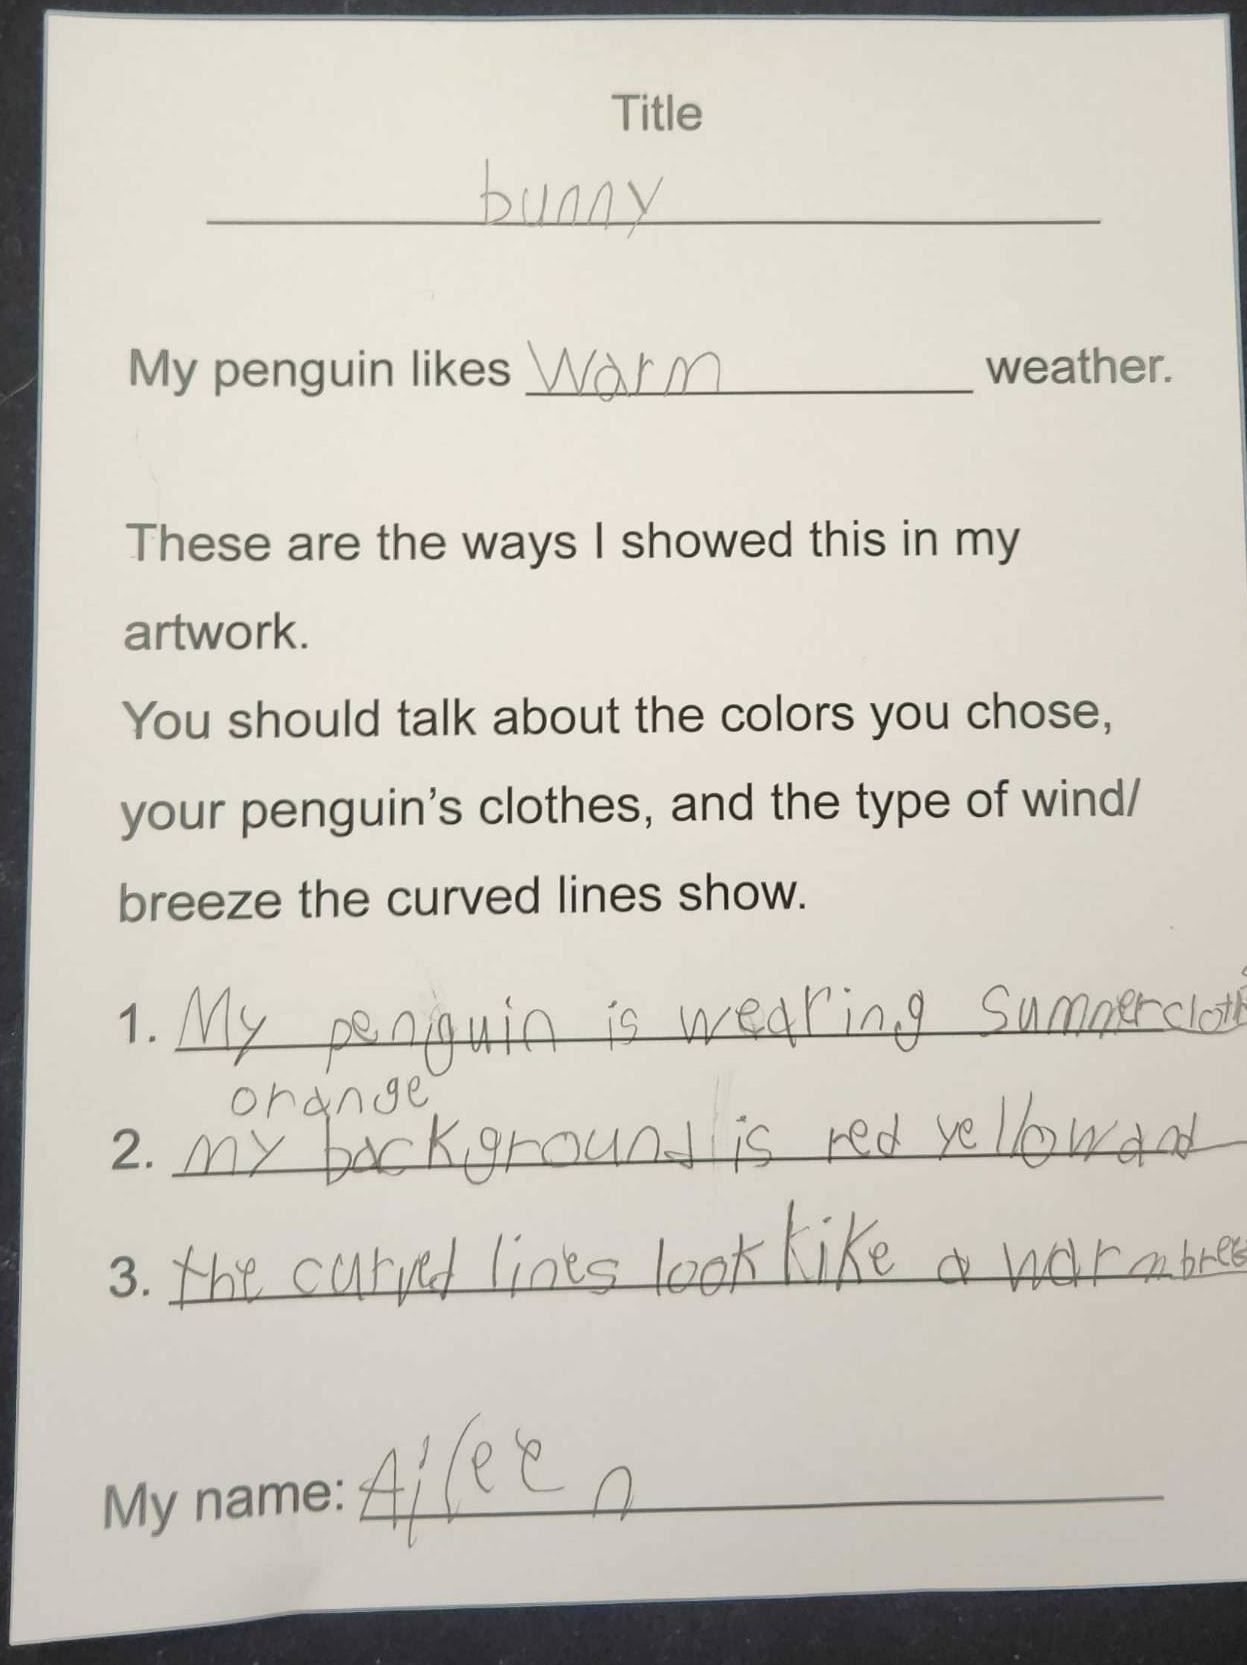 Title
bunny
My penguin likes Warm weather.
These are the ways I showed this in my
artwork.
You should talk about the colors you chose,
your penguin's clothes, and the type of wind/
breeze the curved lines show.
1. My penguin is wearing Summer cloth
orange
2. my background is red yellow and
3. the curved lines look like a warm bree
My name: Aileen